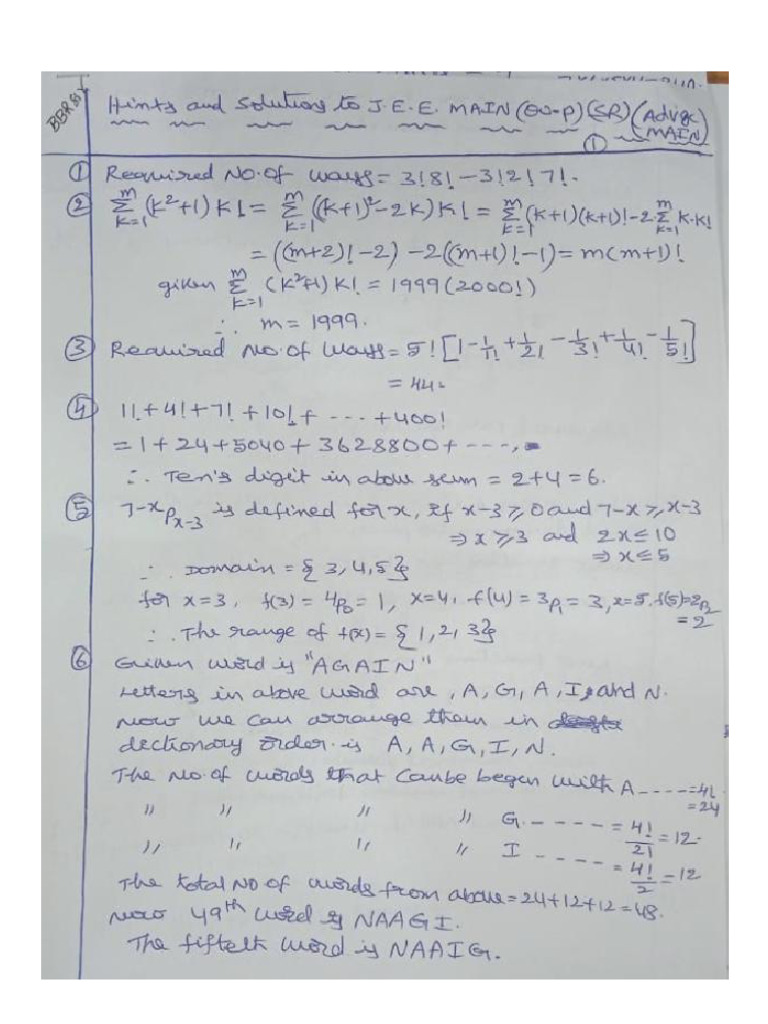 BBRSS
Hints and Solutions to J.E.E. MAIN (SR) (Adv&c MAIN)
①
① Required No. of ways = 3!8! - 3!2!7!.
② m∑k=1 (k²+1) k! = m∑k=1 ((k+1)²-2k) k! = m∑k=1 (k+1)(k+1)! - 2. m∑k=1 k.k!
= ((m+2)! - 2) - 2((m+1)! - 1) = m(m+1)!
given m∑k=1 (k²+1) k! = 1999(2000!)
∴ m = 1999.
③ Required No. of ways = 5! [1 - 1/1! + 1/2! - 1/3! + 1/4! - 1/5!]
= 44.
④ 1! + 4! + 7! + 10! + --- + 400!
= 1 + 24 + 5040 + 3628800 + ---,
∴ Ten's digit in above sum = 2+4 = 6.
⑤ 7-xPx-3 is defined for x, if x-3 ≥ 0 and 7-x ≥ x-3
⇒ x ≥ 3 and 2x ≤ 10
⇒ x ≤ 5
∴ Domain = {3, 4, 5}
for x=3, f(3) = 4P0 = 1, x=4, f(4) = 3P1 = 3, x=5. f(5) = 2P2
= 2
∴ The range of f(x) = {1, 2, 3}
⑥ Given word is "AGAIN"
Letters in above word are, A, G, A, I, and N.
Now we can arrange them in
dectionary order is A, A, G, I, N.
The No. of words that can be began with A ---- = 4!
= 24
" " " " G. ---- = 4!/2! = 12.
" " " " I ---- = 4!/2 = 12
The total NO of words from above = 24+12+12 = 48.
Now 49th word is NAAGI.
The fifteth word is NAAIG.